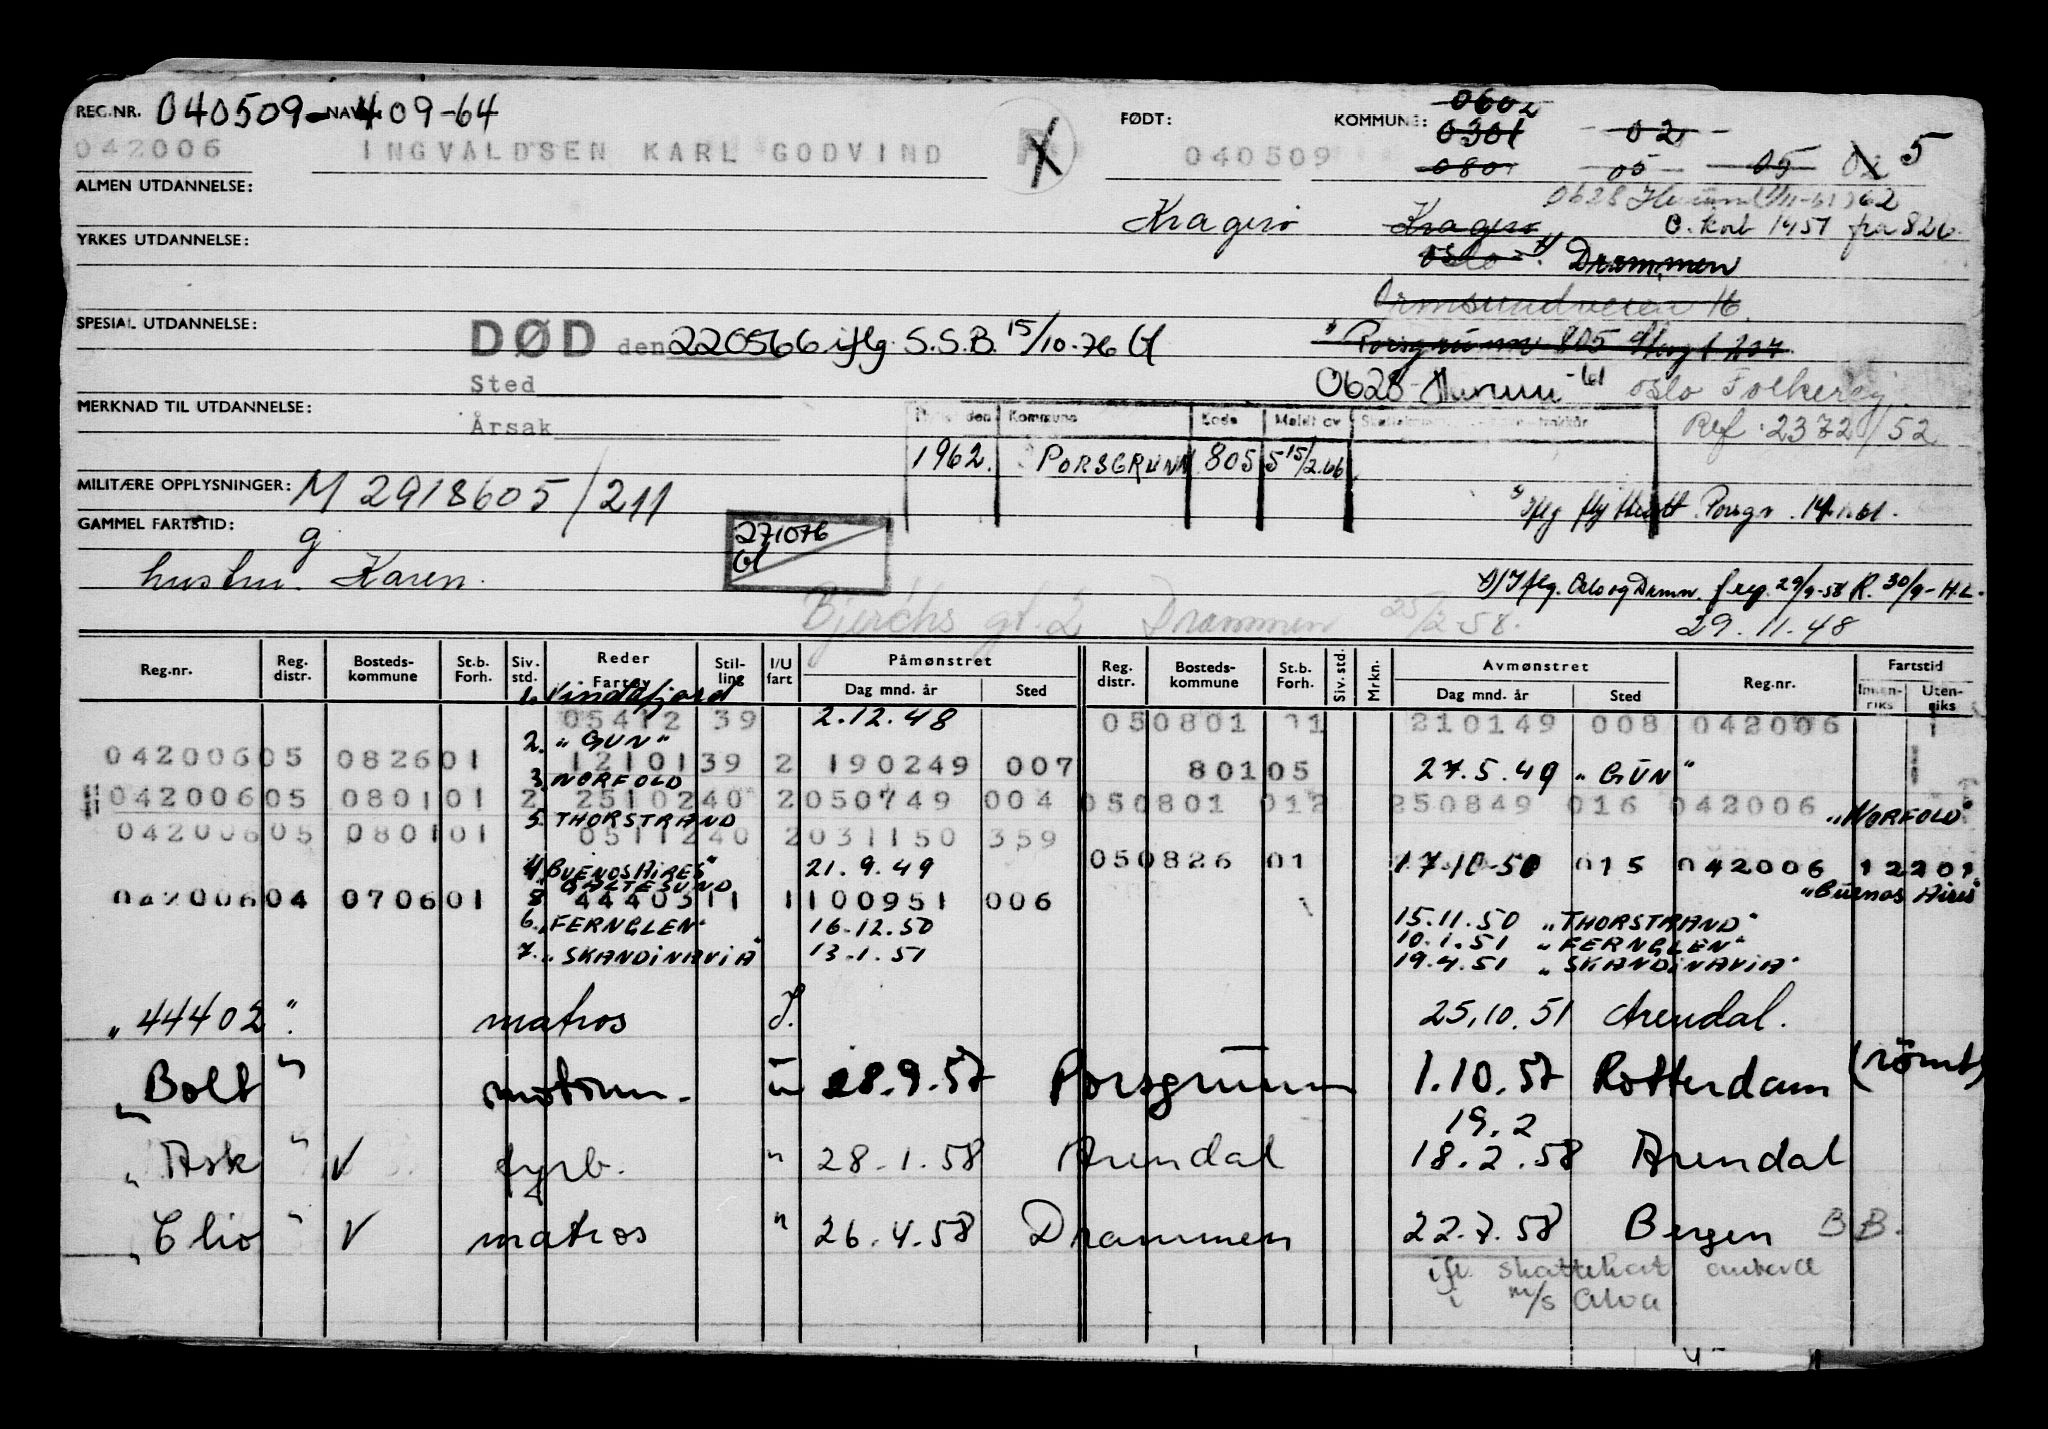 REG.NR. 040509-409-64 FØDT: KOMMUNE: 0602
0301 - 02 -
042006 INGVALDSEN KARL GODVIND 040509 0801 - 05 - 05 5
ALMEN UTDANNELSE: 0628
Kragerø Kragerø O. kort 1451 fra 826
YRKES UTDANNELSE:
Oslo Drammen
Ormsundveien 16.
SPESIAL UTDANNELSE: DØD den 220566 iflg. S.S.B. 15/10-76 Gl
Porsgrunn 805
Sted 0628 Hurum -61 Oslo Folkereg.
MERKNAD TIL UTDANNELSE: den Kommune Kode Meldt av
Årsak Ref. 2372/52
1962. PORSGRUNN 805 5 15/2.66
MILITÆRE OPPLYSNINGER: M 2918605/211
Porsgr. 14.1.61.
GAMMEL FARTSTID: g
271076
Gl
hustru Karen.
1)/Iflg. Oslo og Dramn. f.reg. 29/9-58 R. 30/9-H.L.
Bjerchs gt. 2 Drammen 25/2-58. 29.11.48
Reg.nr. Reg. distr. Bosteds-kommune St.b. Forh. Siv. std. Reder Fartøy Stil-ling I/U fart Påmønstret Reg. distr. Bosteds-kommune St.b. Forh. Siv. std. Mrkn. Avmønstret Reg.nr. Fartstid
Dag mnd. år Sted Dag mnd. år Sted Innen-riks Uten-riks
1. Vindafjord
05412 39 2.12.48 050801 01 210149 008 042006
2. "GUN"
042006 05 0826 01 12101 39 2 190249 007 801 05 27.5.49 "GUN"
3. NORFOLD
042006 05 0801 01 2 25102 40 2 050749 004 050801 012 250849 016 042006 "NORFOLD"
5. THORSTRAND
042006 05 0801 01 05112 40 2 031150 359
4. BUENOS AIRES" 21.9.49 050826 01 17-10-50 015 042006 12201
"GALTESUND "Buenos Aires"
042006 04 0706 01 8 44403 11 1 100951 006
6. "FERNGLEN" 16.12.50 15.11.50 "THORSTRAND"
7. "SKANDINAVIA" 13.1.51 10.1.51 "FERNGLEN"
19.4.51 "SKANDINAVIA"
"44402". matros I. 25.10.51 Arendal.
"Bolt" motorm. u 28.9.57 Porsgrunn 1.10.57 Rotterdam (römt)
19.2
"Ask" V fyrb. " 28.1.58 Arendal 18.2.58 Arendal
"Clio" V matros " 26.4.58 Drammen 22.7.58 Bergen B B.
ifl. skattekort ombord
i m/s Alva